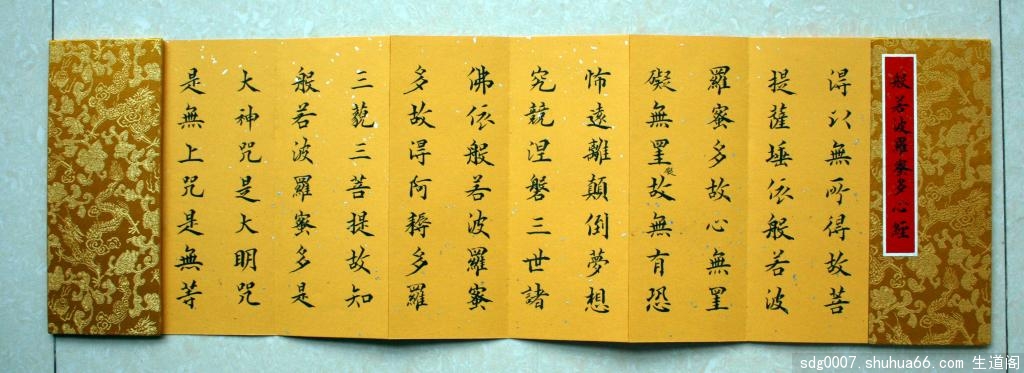 般若波羅蜜多心經
得以無所得故菩
提薩埵依般若波
羅蜜多故心無罣
礙無罣礙故無有恐
怖遠離顛倒夢想
究竟涅槃三世諸
佛依般若波羅蜜
多故得阿耨多羅
三藐三菩提故知
般若波羅蜜多是
大神咒是大明咒
是無上咒是無等
sdg0007.shuhua66.com 生道阁